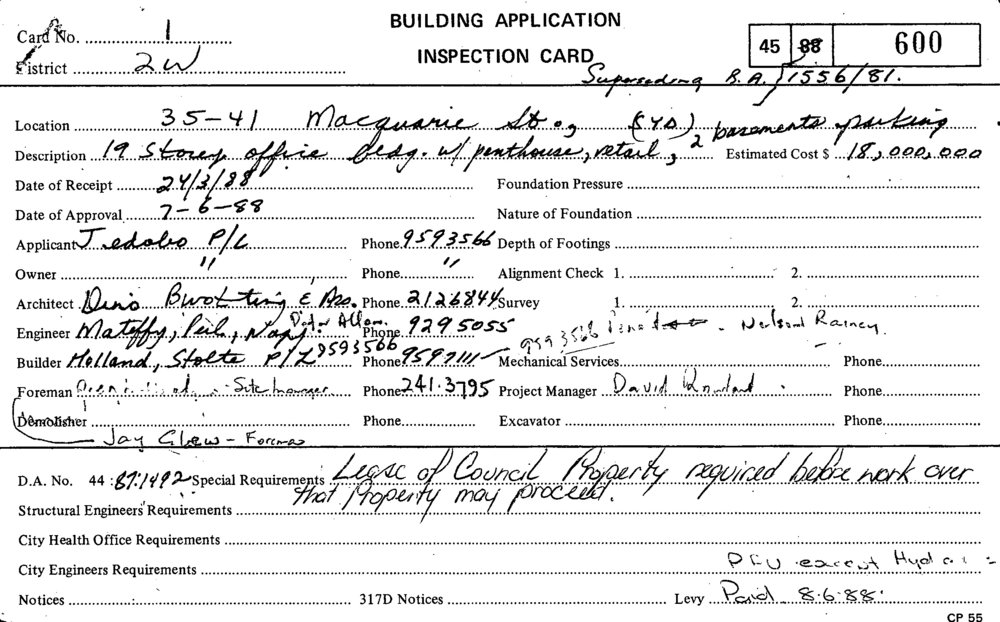 BUILDING APPLICATION
Card No. 1
INSPECTION CARD
45 88 600
District 2W
Superseding B.A. 1556/81.
Location 35-41 Macquarie St (SYD)
Description 19 Storey office bldg. w/ penthouse, retail, 2 basements parking Estimated Cost $ 18,000,000
Date of Receipt 24/3/88 Foundation Pressure
Date of Approval 7-6-88 Nature of Foundation
Applicant Jedobo P/L Phone 9593566 Depth of Footings
Owner " Phone " Alignment Check 1. 2.
Architect Dino & Ass. Phone 2126844 Survey 1. 2.
Engineer Phone 9295055 9593566
Builder Holland, Stolte P/L 9593566 Phone 9597111 Mechanical Services Phone
Foreman Site Manager Phone 241.3795 Project Manager David Phone
Demolisher Phone Excavator Phone
Jay Glew - Foreman
D.A. No. 44 : 87:1492 Special Requirements Lease of Council Property required before work over
that Property may proceed.
Structural Engineers' Requirements
City Health Office Requirements
City Engineers Requirements except
Notices 317D Notices Levy Paid 8.6.88.
CP 55